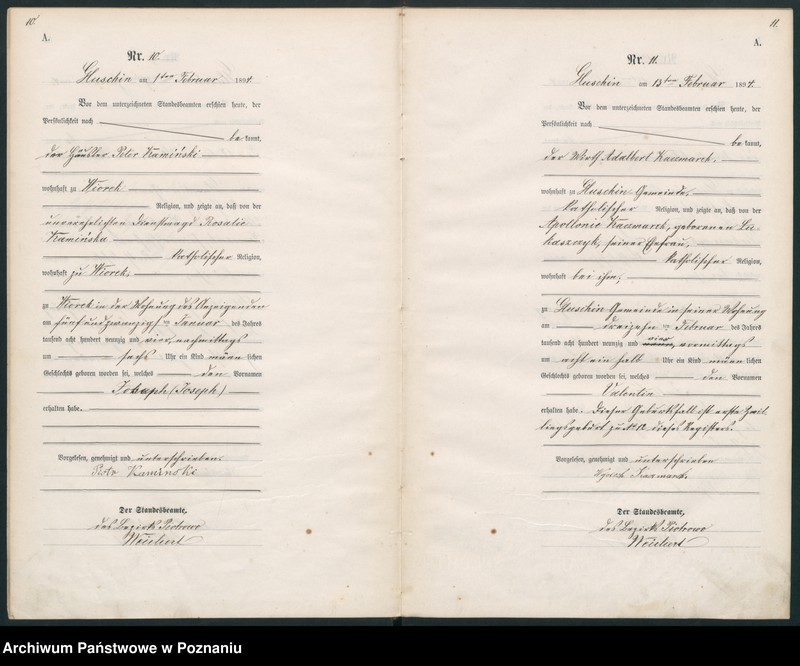 10.
A.
Nr. 10.
Gluschin am 1ten Februar 1894.
Vor dem unterzeichneten Standesbeamten erschien heute, der
Persönlichkeit nach
bekannt,
der Häusler Peter Kamiński
wohnhaft zu Wiorek
Religion, und zeigte an, daß von der
unverehelichten Dienstmagd Rosalie
Kamińska
katholischer Religion,
wohnhaft zu Wiorek,
zu Wiorek in der Wohnung des Anzeigenden
am fünfundzwanzigsten Januar des Jahres
tausend acht hundert neunzig und vier, nachmittags
um sechs Uhr ein Kind männlichen
Geschlechts geboren worden sei, welches den Vornamen
(Joseph)
erhalten habe.
Vorgelesen, genehmigt und unterschrieben.
Piotr Kaminski
Der Standesbeamte,
des Bezirks Piotrowo
11.
A.
Nr. 11.
Gluschin am 13ten Februar 1894.
Vor dem unterzeichneten Standesbeamten erschien heute, der
Persönlichkeit nach
bekannt,
der Wirth Adalbert Kaczmarek,
wohnhaft zu Gluschin Gemeinde,
katholischer Religion, und zeigte an, daß von der
Apollonie Kaczmarek, geborenen Lu-
kaszczyk, seiner Ehefrau,
katholischer Religion,
wohnhaft bei ihm,
zu Gluschin Gemeinde in seiner Wohnung
am dreizehnten Februar des Jahres
tausend acht hundert neunzig und vier, vormittags
um acht ein halb Uhr ein Kind männlichen
Geschlechts geboren worden sei, welches den Vornamen
Valentin
erhalten habe. Dieser Geburtsfall ist erste Zwil-
lingsgeburt zu Nr 12 dieses Registers.
Vorgelesen, genehmigt und unterschrieben
Der Standesbeamte,
des Bezirks Piotrowo
Archiwum Państwowe w Poznaniu